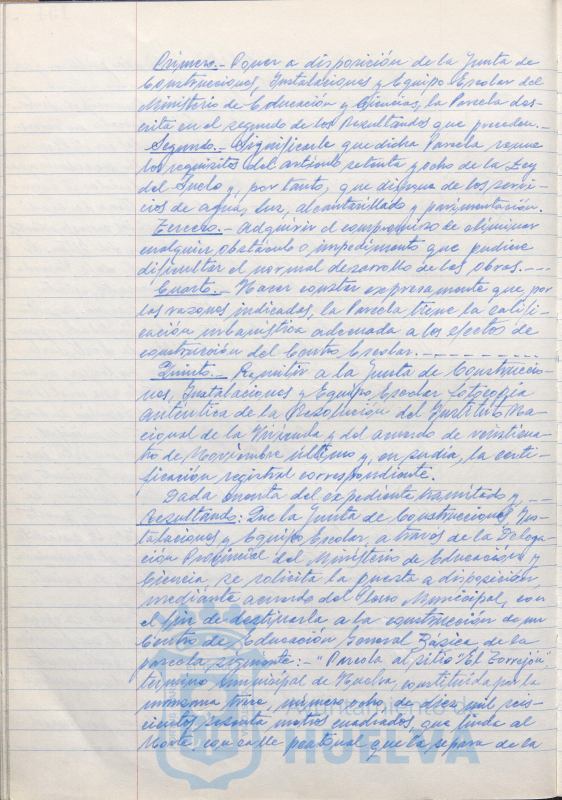 Primero.- Poner a disposición de la Junta de
Construcciones, Instalaciones y Equipo Escolar del
Ministerio de Educación y Ciencias, la Parcela des-
crita en el segundo de los Resultandos que preceden.-
Segundo.- Significarle que dicha Parcela reune
los requisitos del artículo setenta y ocho de la Ley
del Suelo y, por tanto, que dispone de los servi-
cios de agua, luz, alcantarillado y pavimentación.
Tercero.- Adquirir el compromiso de eliminar
cualquier obstáculo o impedimento que pudiere
dificultar el normal desarrollo de las obras.- - -
Cuarto.- Hacer constar expresamente que, por
las razones indicadas, la Parcela tiene la califi-
cación urbanística adecuada a los efectos de
construcción del Centro Escolar.- - - - - - - - -
Quinto.- Remitir a la Junta de Construccio-
nes, Instalaciones y Equipo Escolar fotocopia
auténtica de la Resolución del Instituto Na-
cional de la Vivienda y del acuerdo de veinticua-
tro de Noviembre último y, en su día, la certi-
ficación registral correspondiente.
Dada cuenta del expediente tramitado y - -
Resultando: Que la Junta de Construcciones, Ins-
talaciones y Equipo Escolar, a través de la Delega-
ción Provincial del Ministerio de Educación y
Ciencia, se solicita la puesta a disposición,
mediante acuerdo del Pleno Municipal, con
el fin de destinarla a la construcción de un
Centro de Educación General Básica de la
parcela siguiente:- "Parcela al sitio "El Torrejón",
término municipal de Huelva, constituida por la
manzana trece, número ocho, de diez mil seis-
cientos setenta metros cuadrados, que linda al
Norte, con calle peatonal que la separa de la
HUELVA